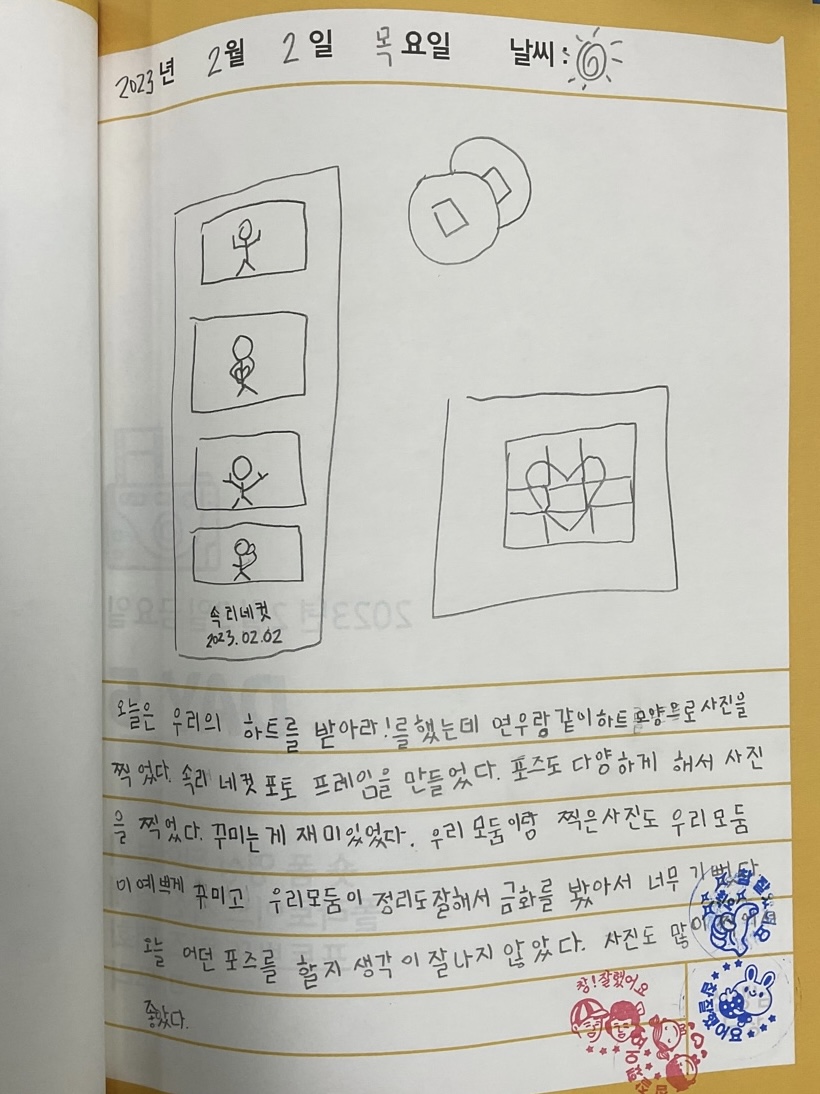 2023년 2월 2일 목요일 날씨:
속리네컷
2023.02.02
오늘은 우리의 하트를 받아라!를했는데 연우랑같이하트모양으로사진을
찍었다. 속리네컷 포토 프레임을 만들었다. 포즈도 다양하게 해서 사진
을 찍었다. 꾸미는게 재미있었다. 우리 모둠이랑 찍은사진도 우리모둠
이예쁘게 꾸미고 우리모둠이 정리도잘해서 금화를 봤아서 너무 기뻤다.
오늘 어떤 포즈를 할지 생각이잘나지 않았다. 사진도 많이
좋았다.
참!잘했어요
참잘했어요